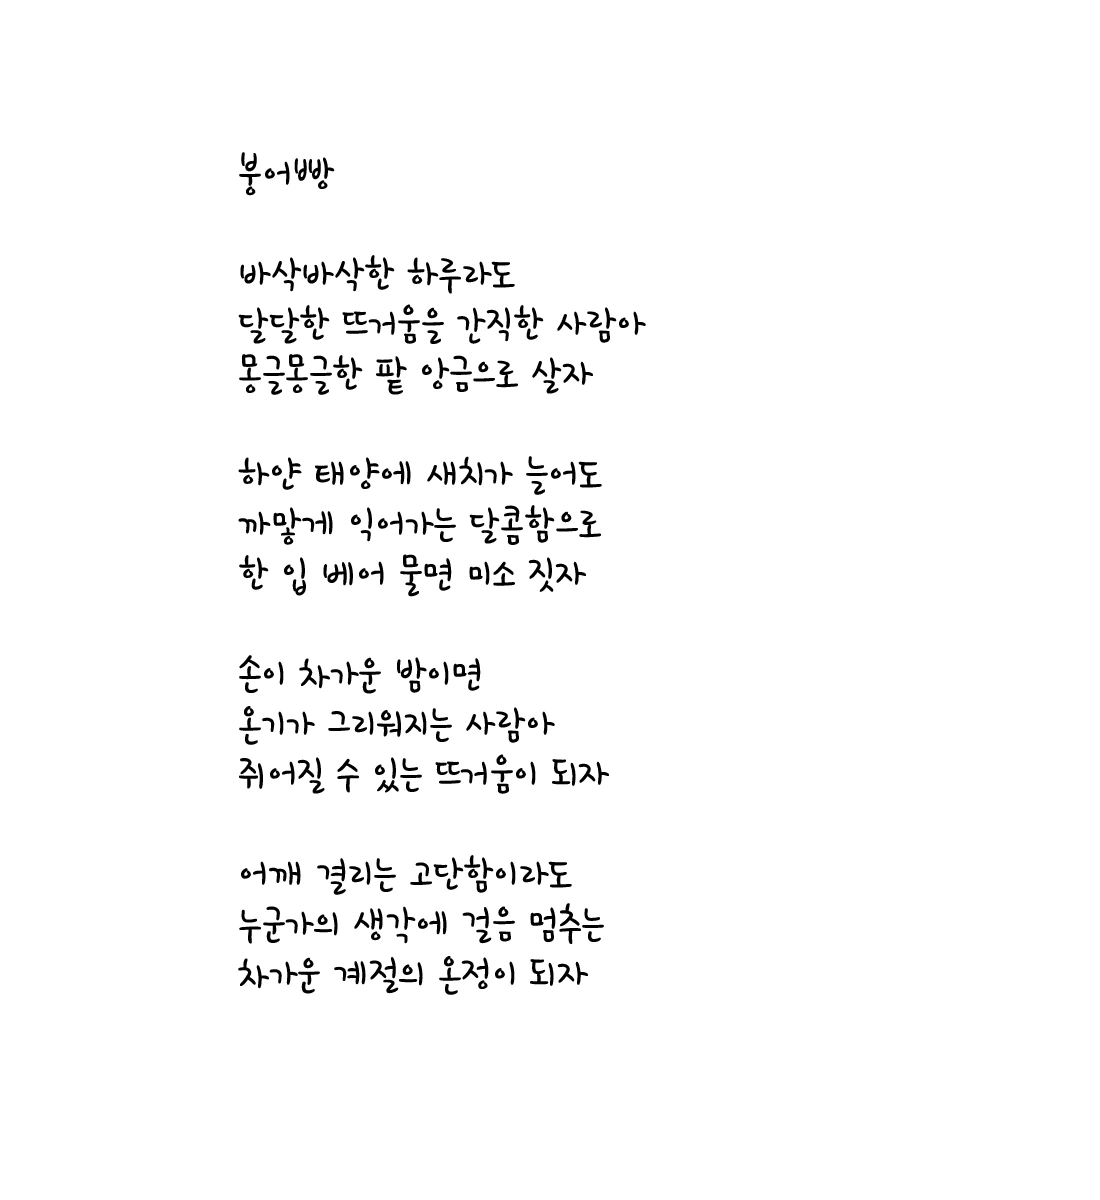 붕어빵
바삭바삭한 하루라도
달달한 뜨거움을 간직한 사람아
몽글몽글한 팥 앙금으로 살자
하얀 태양에 새치가 늘어도
까맣게 익어가는 달콤함으로
한 입 베어 물면 미소 짓자
손이 차가운 밤이면
온기가 그리워지는 사람아
쥐어질 수 있는 뜨거움이 되자
어깨 결리는 고단함이라도
누군가의 생각에 걸음 멈추는
차가운 계절의 온정이 되자